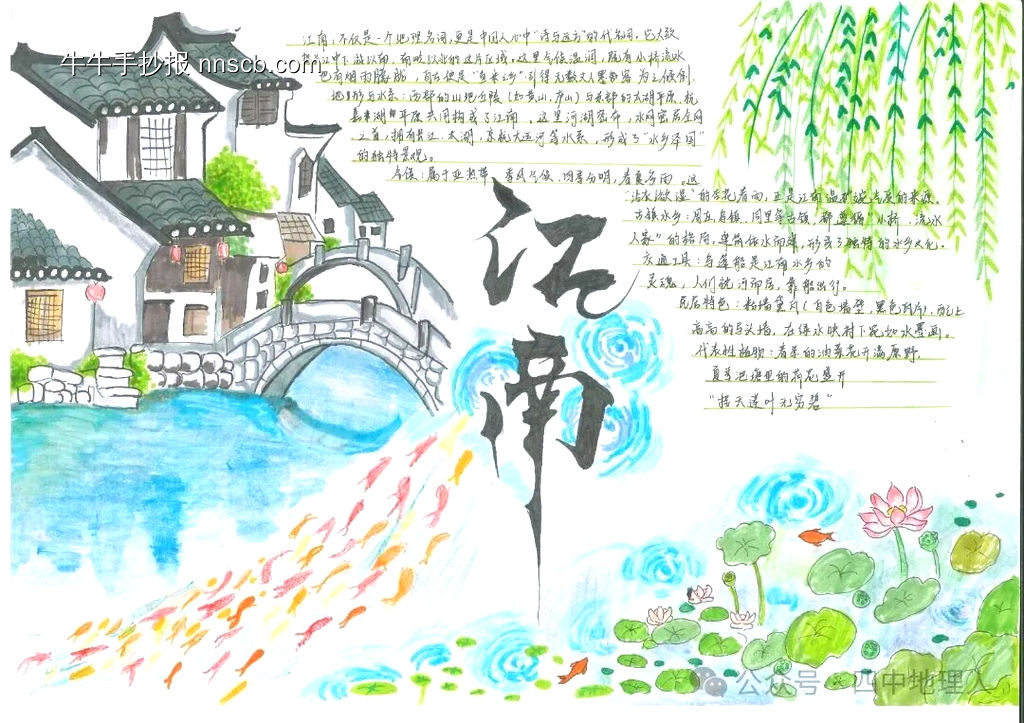 牛牛手抄报 nnscb.com
江南，不仅是一个地理名词，更是中国人心中"诗与远方"的代名词。它大致
长江中下游以南，南岭以北的这片区域。这里气候温润，既有小桥流水
也有烟雨朦胧，自古便是"鱼米之乡"，引得无数文人墨客为之倾倒。
地形与水系：西部的山地丘陵（如黄山，庐山）与东部的太湖平原，杭
嘉湖平原共同构成了江南。这里河湖密布，水网密居全国
之首，拥有长江、太湖、京杭大运河等水系，形成了"水乡泽国"
的独特景观。
气候：属于亚热带季风气候，四季分明，春夏多雨。这
"沾衣欲湿"的杏花春雨，正是江南温婉气质的来源。
古镇水乡：周庄，乌镇，同里等古镇，都遵循"小桥，流水
人家"的格局，建筑依水而建，形成了独特的水乡文化。
交通工具：乌篷船是江南水乡的
灵魂，人们枕河而居，靠船出行。
民居特色：粉墙黛瓦（白色墙壁，黑色瓦片），配上
高高的马头墙，在绿水映衬下宛如水墨画。
代表性植物：春季的油菜花开满原野
夏季池塘里的荷花盛开
"接天莲叶无穷碧"
江南
公众号·四中地理人